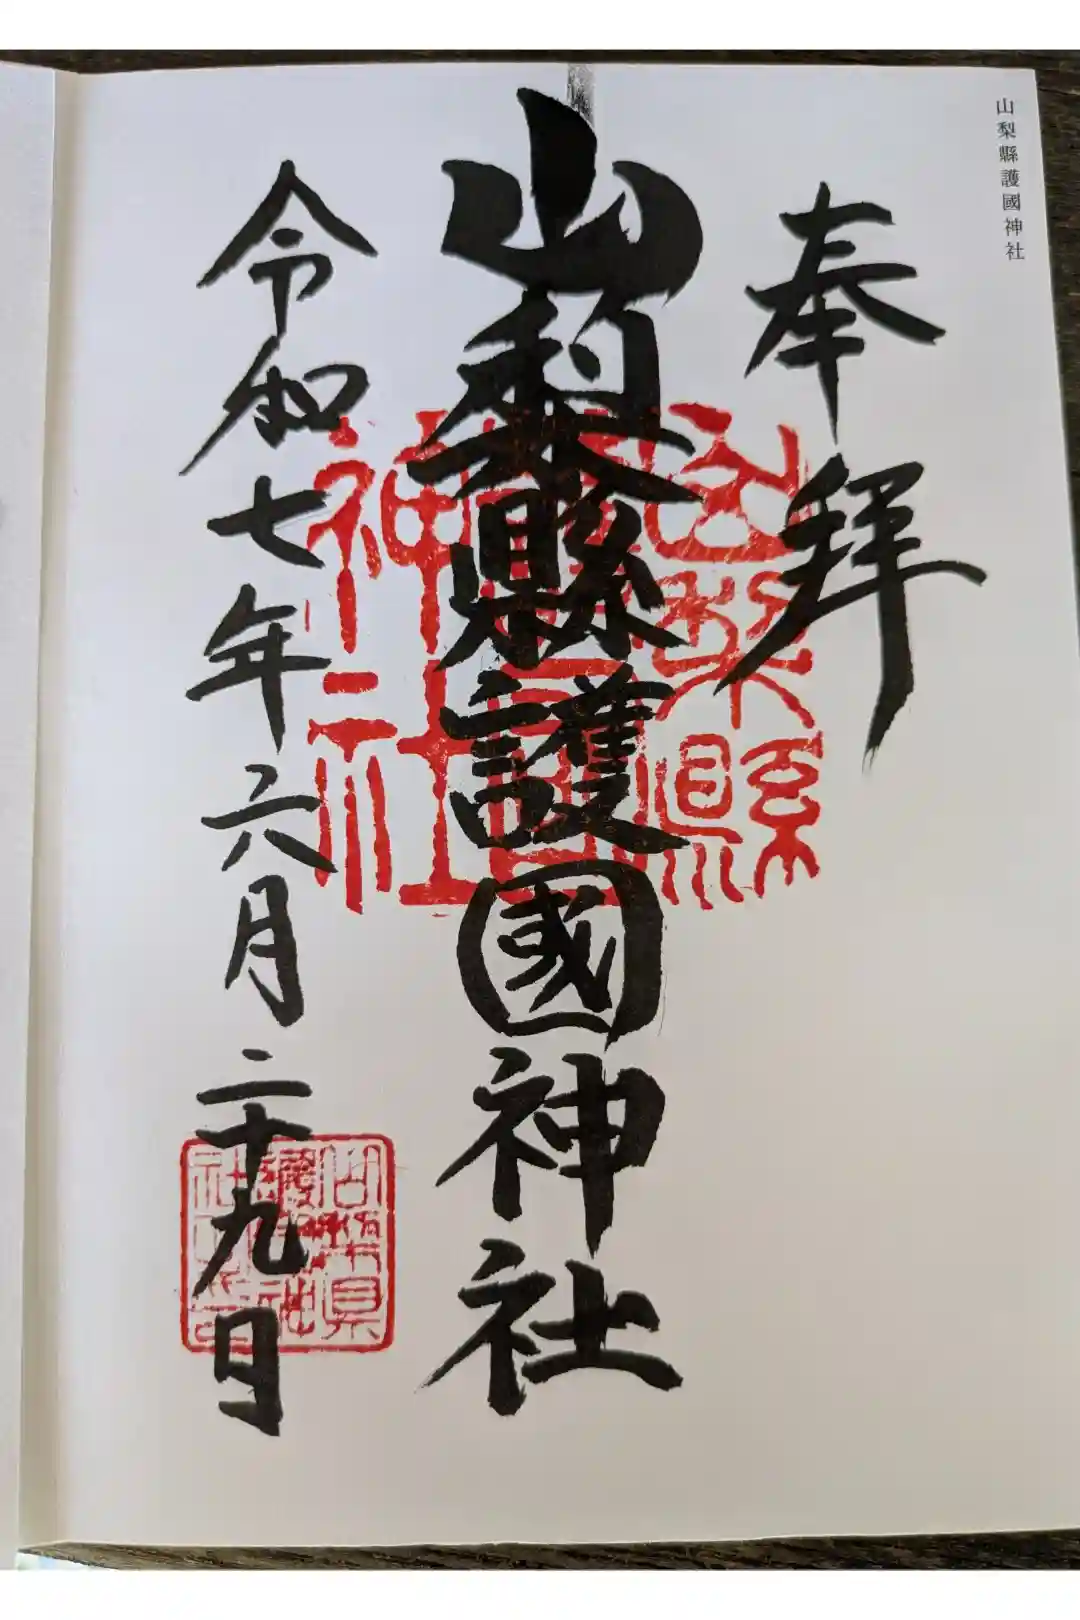 山梨縣護國神社
奉拜
山梨縣護國神社
令和七年六月二十九日
山梨縣
護國
神社